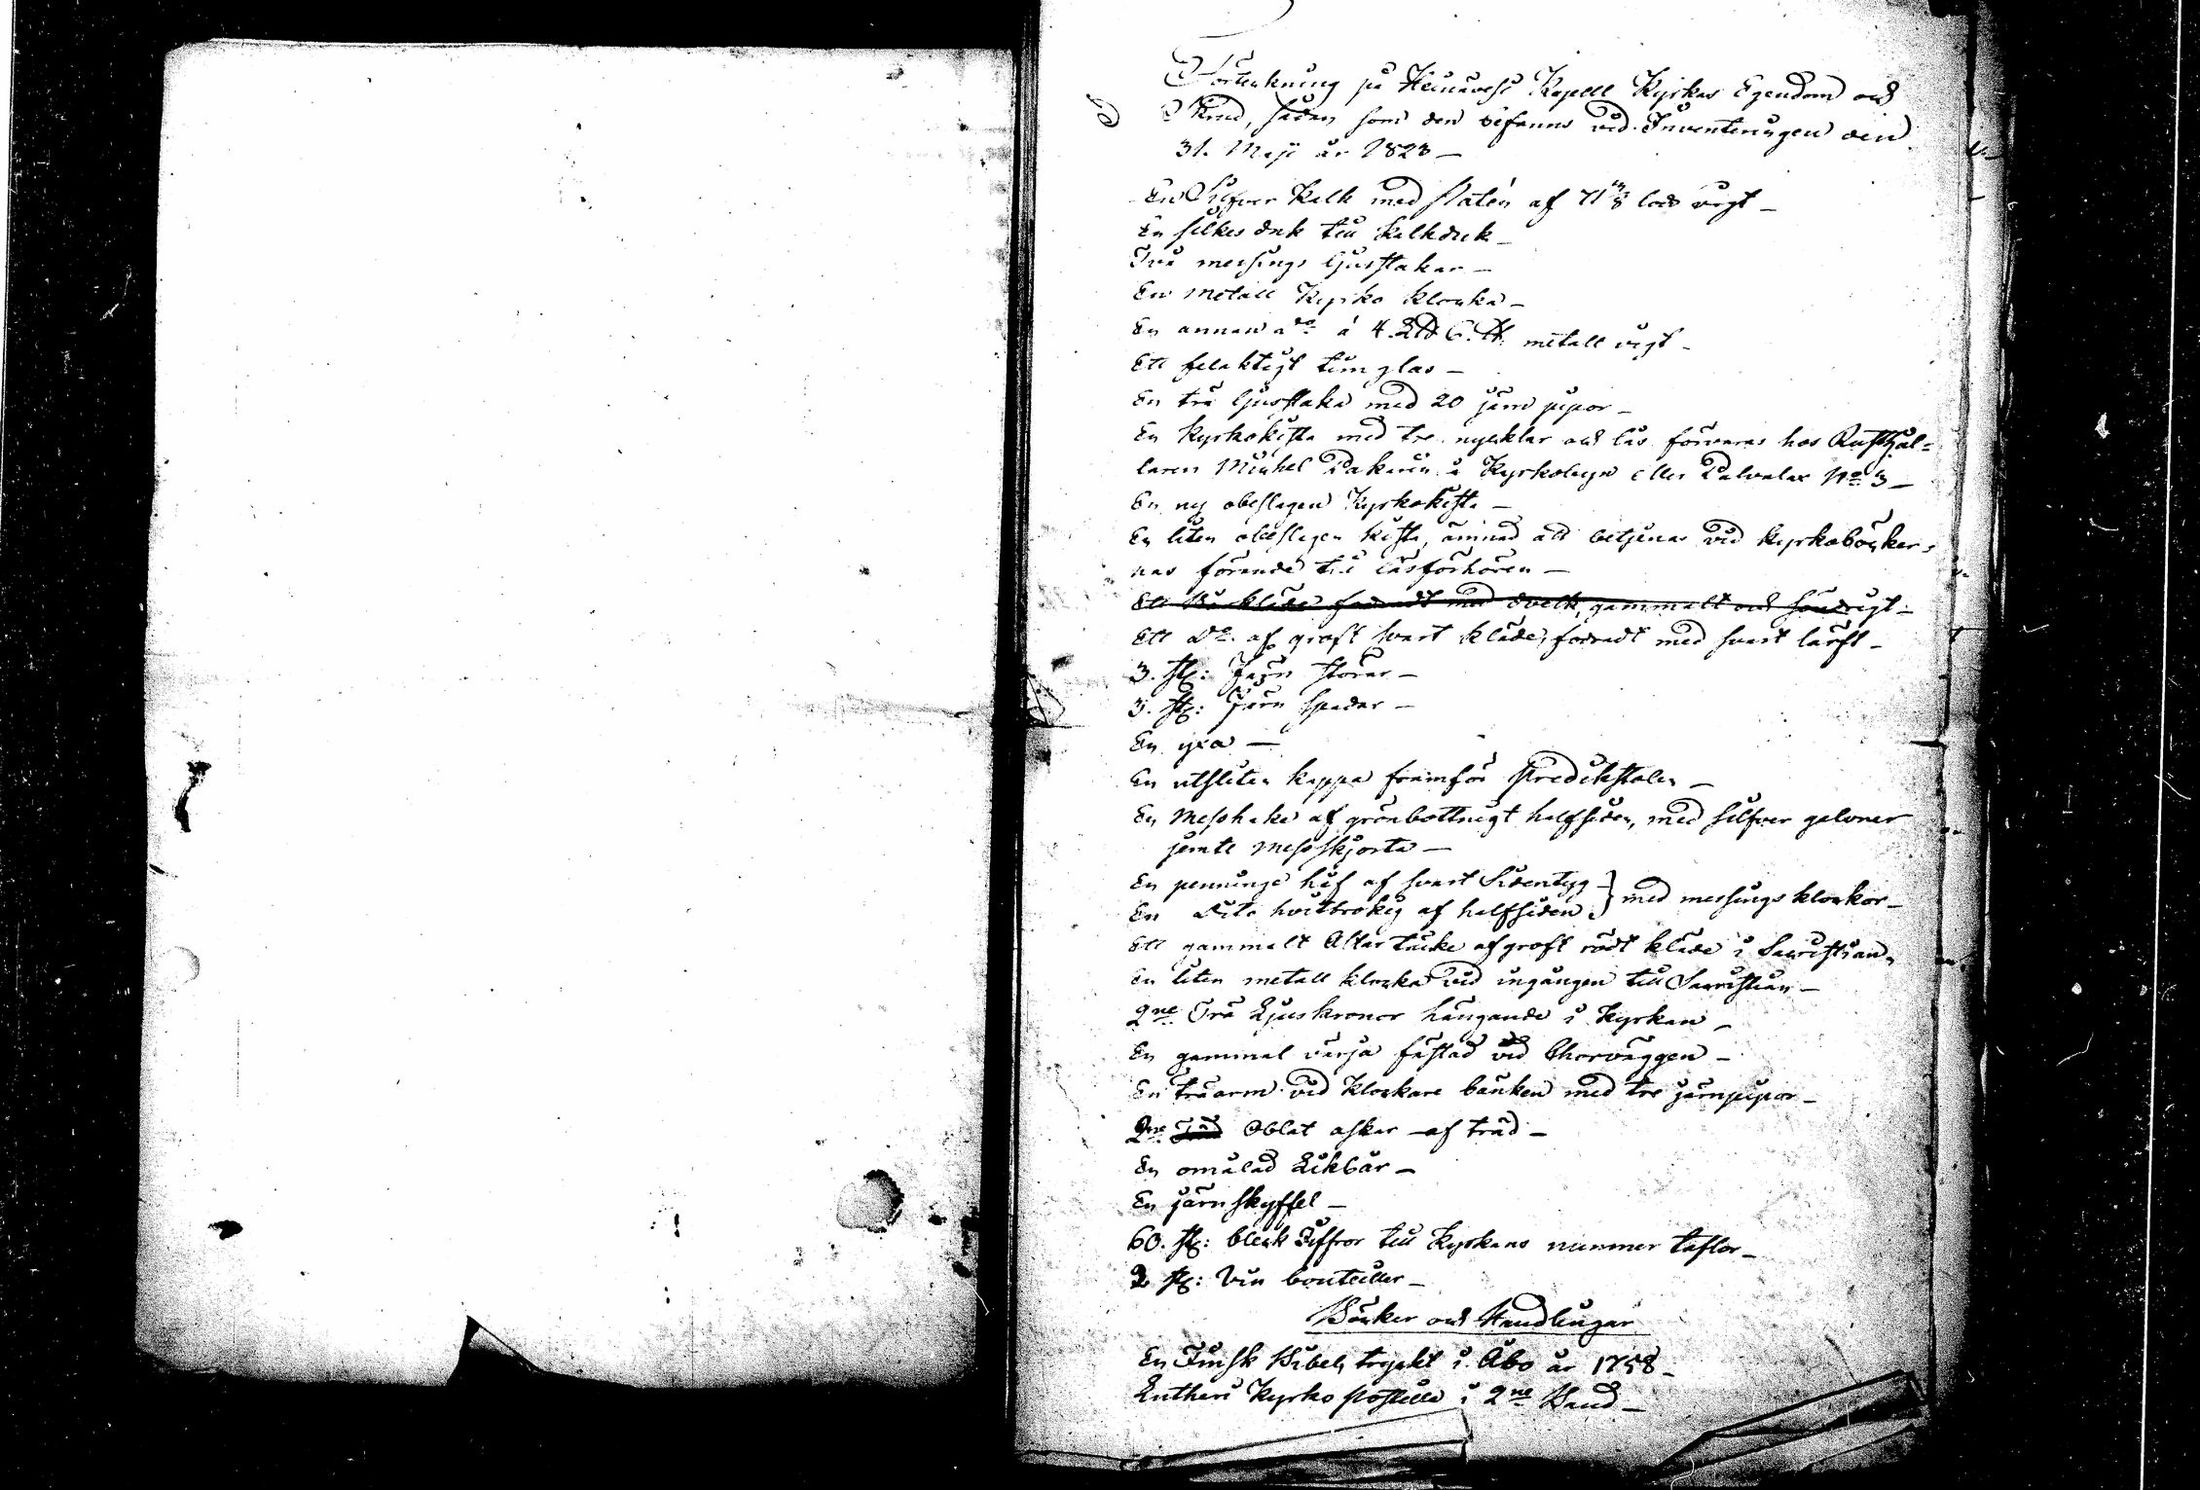 Förteckning på Heinävesi Kapell Kyrkas Egendom och
Skrud, sådan som den befanns vid Inventeringen den
31. Maji år 1823 —
En Silfver Kalk med Paten af 71 3/8 lods vigt —
En silkes duk till kalkduk —
Två messings ljusstakar —
En metall Kyrko klocka —
En annan do á 4. L℔ 6. ℔. metall vigt —
Ett felaktigt timglas —
En trä ljusstaka med 20 järn pipor —
En Kyrkokista med tre nycklar och lås förvaras hos Rusthål=
laren Michel Pakarin i Kyrkobyn eller Palvalax No 3 —
En ny obeslagen Kyrkokista —
En liten obeslagen kista, ämnad att betjenas vid kyrkoböcker=
nas förande till läsförhören —
Ett Bårkläde fodradt med dwelk, gammalt och söndrigt —
Ett Do. af groft svart kläde, fodradt med svart lärft —
3. st: Järn störar —
3. st: Järn spadar —
En yxa —
En utsliten kappa framför Predikstolen —
En Messhake af grönbottnigt halfsiden, med silfver galoner
jemte messskjorta —
En penninge håf af svart Sidentyg —
En Dito hvitbrokig af halfsiden } med messings klockor —
Ett gammalt Altartäcke af groft rödt kläde i Sacristian,
En liten metall klocka vid ingången till Sacristian —
2ne Trä Ljuskronor hängande i Kyrkan —
En gammal värja fästad vid Chorväggen —
En träarm vid Klockare bänken med tre järnpipor —
2ne Träd Oblat askar af träd —
En omålad Likbår —
En järnskyffel —
60. st: bleck Ziffror till Kyrkans nummer taflor —
2 st: Vin bouteiller —
Böcker och Handlingar
En Finsk Bibel, tryckt i Åbo år 1758 —
Lutheri Kyrko Postilla i 2ne Band —